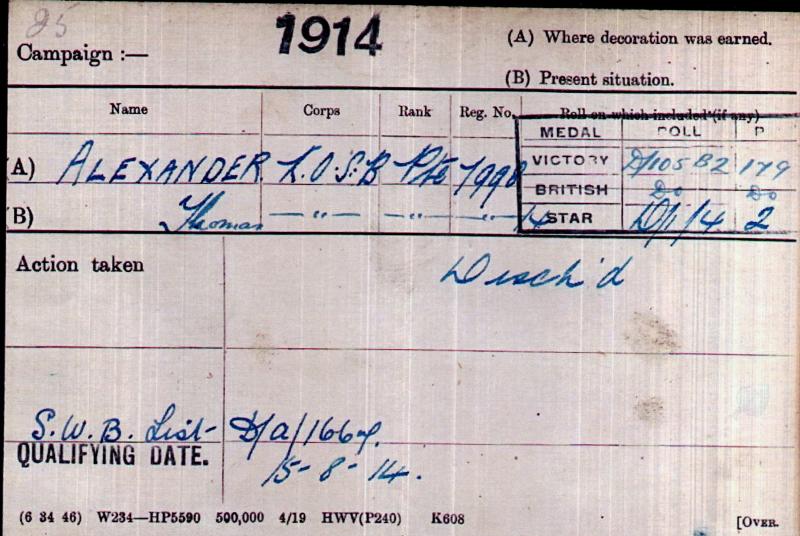 25
Campaign :— 1914
(A) Where decoration was earned.
(B) Present situation.
Name Corps Rank Reg. No. Roll on which included (if any)
MEDAL ROLL P
(A) ALEXANDER K.O.S.B Pte 7998 VICTORY D/105 B2 179
BRITISH Do Do
(B) Thomas — " — — " — — " — 14 STAR D/1/4 2
Action taken
Disch'd
S.W.B. List - D/a/
QUALIFYING DATE. 15-8-14.
(6 34 46) W234—HP5590 500,000 4/19 HWV(P240) K608 [OVER.